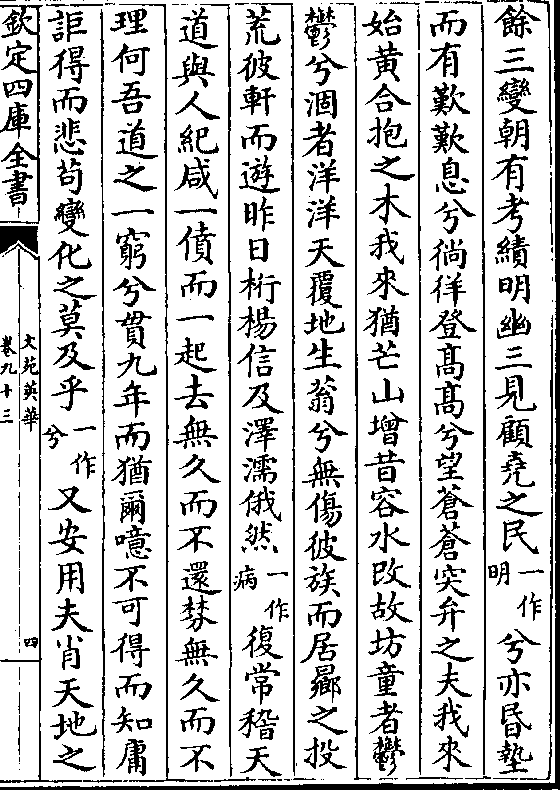 餘三變朝有考績明幽三見顧堯之民一作明兮亦昏墊
而有歎歎息兮徜徉登高高兮望蒼蒼突弁之夫我來
始黃合抱之木我來猶芒山增昔容水改故坊童者鬱
鬱兮涸者洋洋天覆地生翁兮無傷彼族而居曏之投
荒彼軒而遊昨日桁楊信及澤濡俄然一作病復常稽天
道與人紀咸一僨而一起去無久而不還棼無久而不
理何吾道之一窮兮貫九年而猶爾噫不可得而知庸
詎得而悲苟變化之莫及乎一作兮又安用夫肖天地之
欽定四庫全書
文苑英華
卷九十三
四